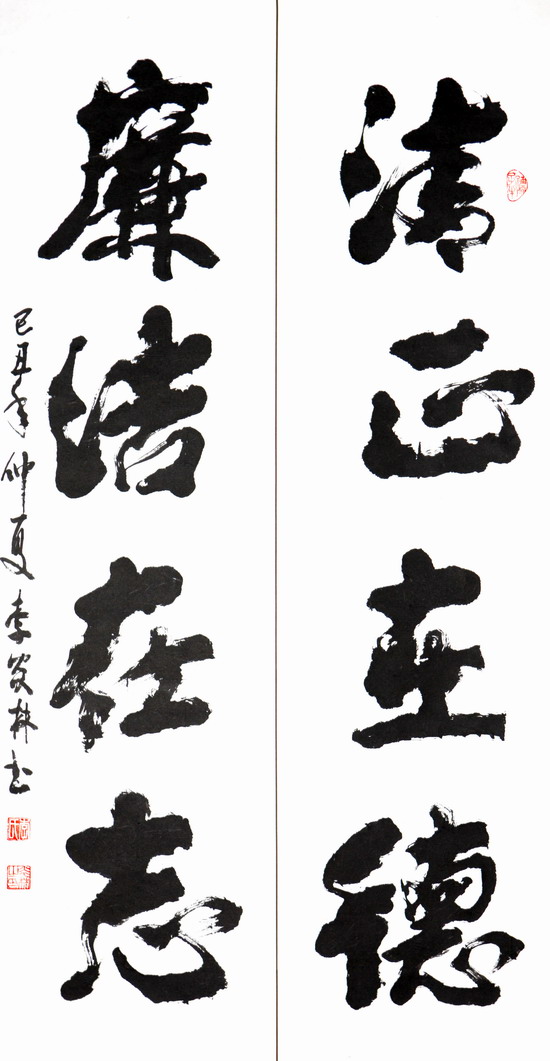 清正在德
廉洁在志
己丑年仲夏李林书